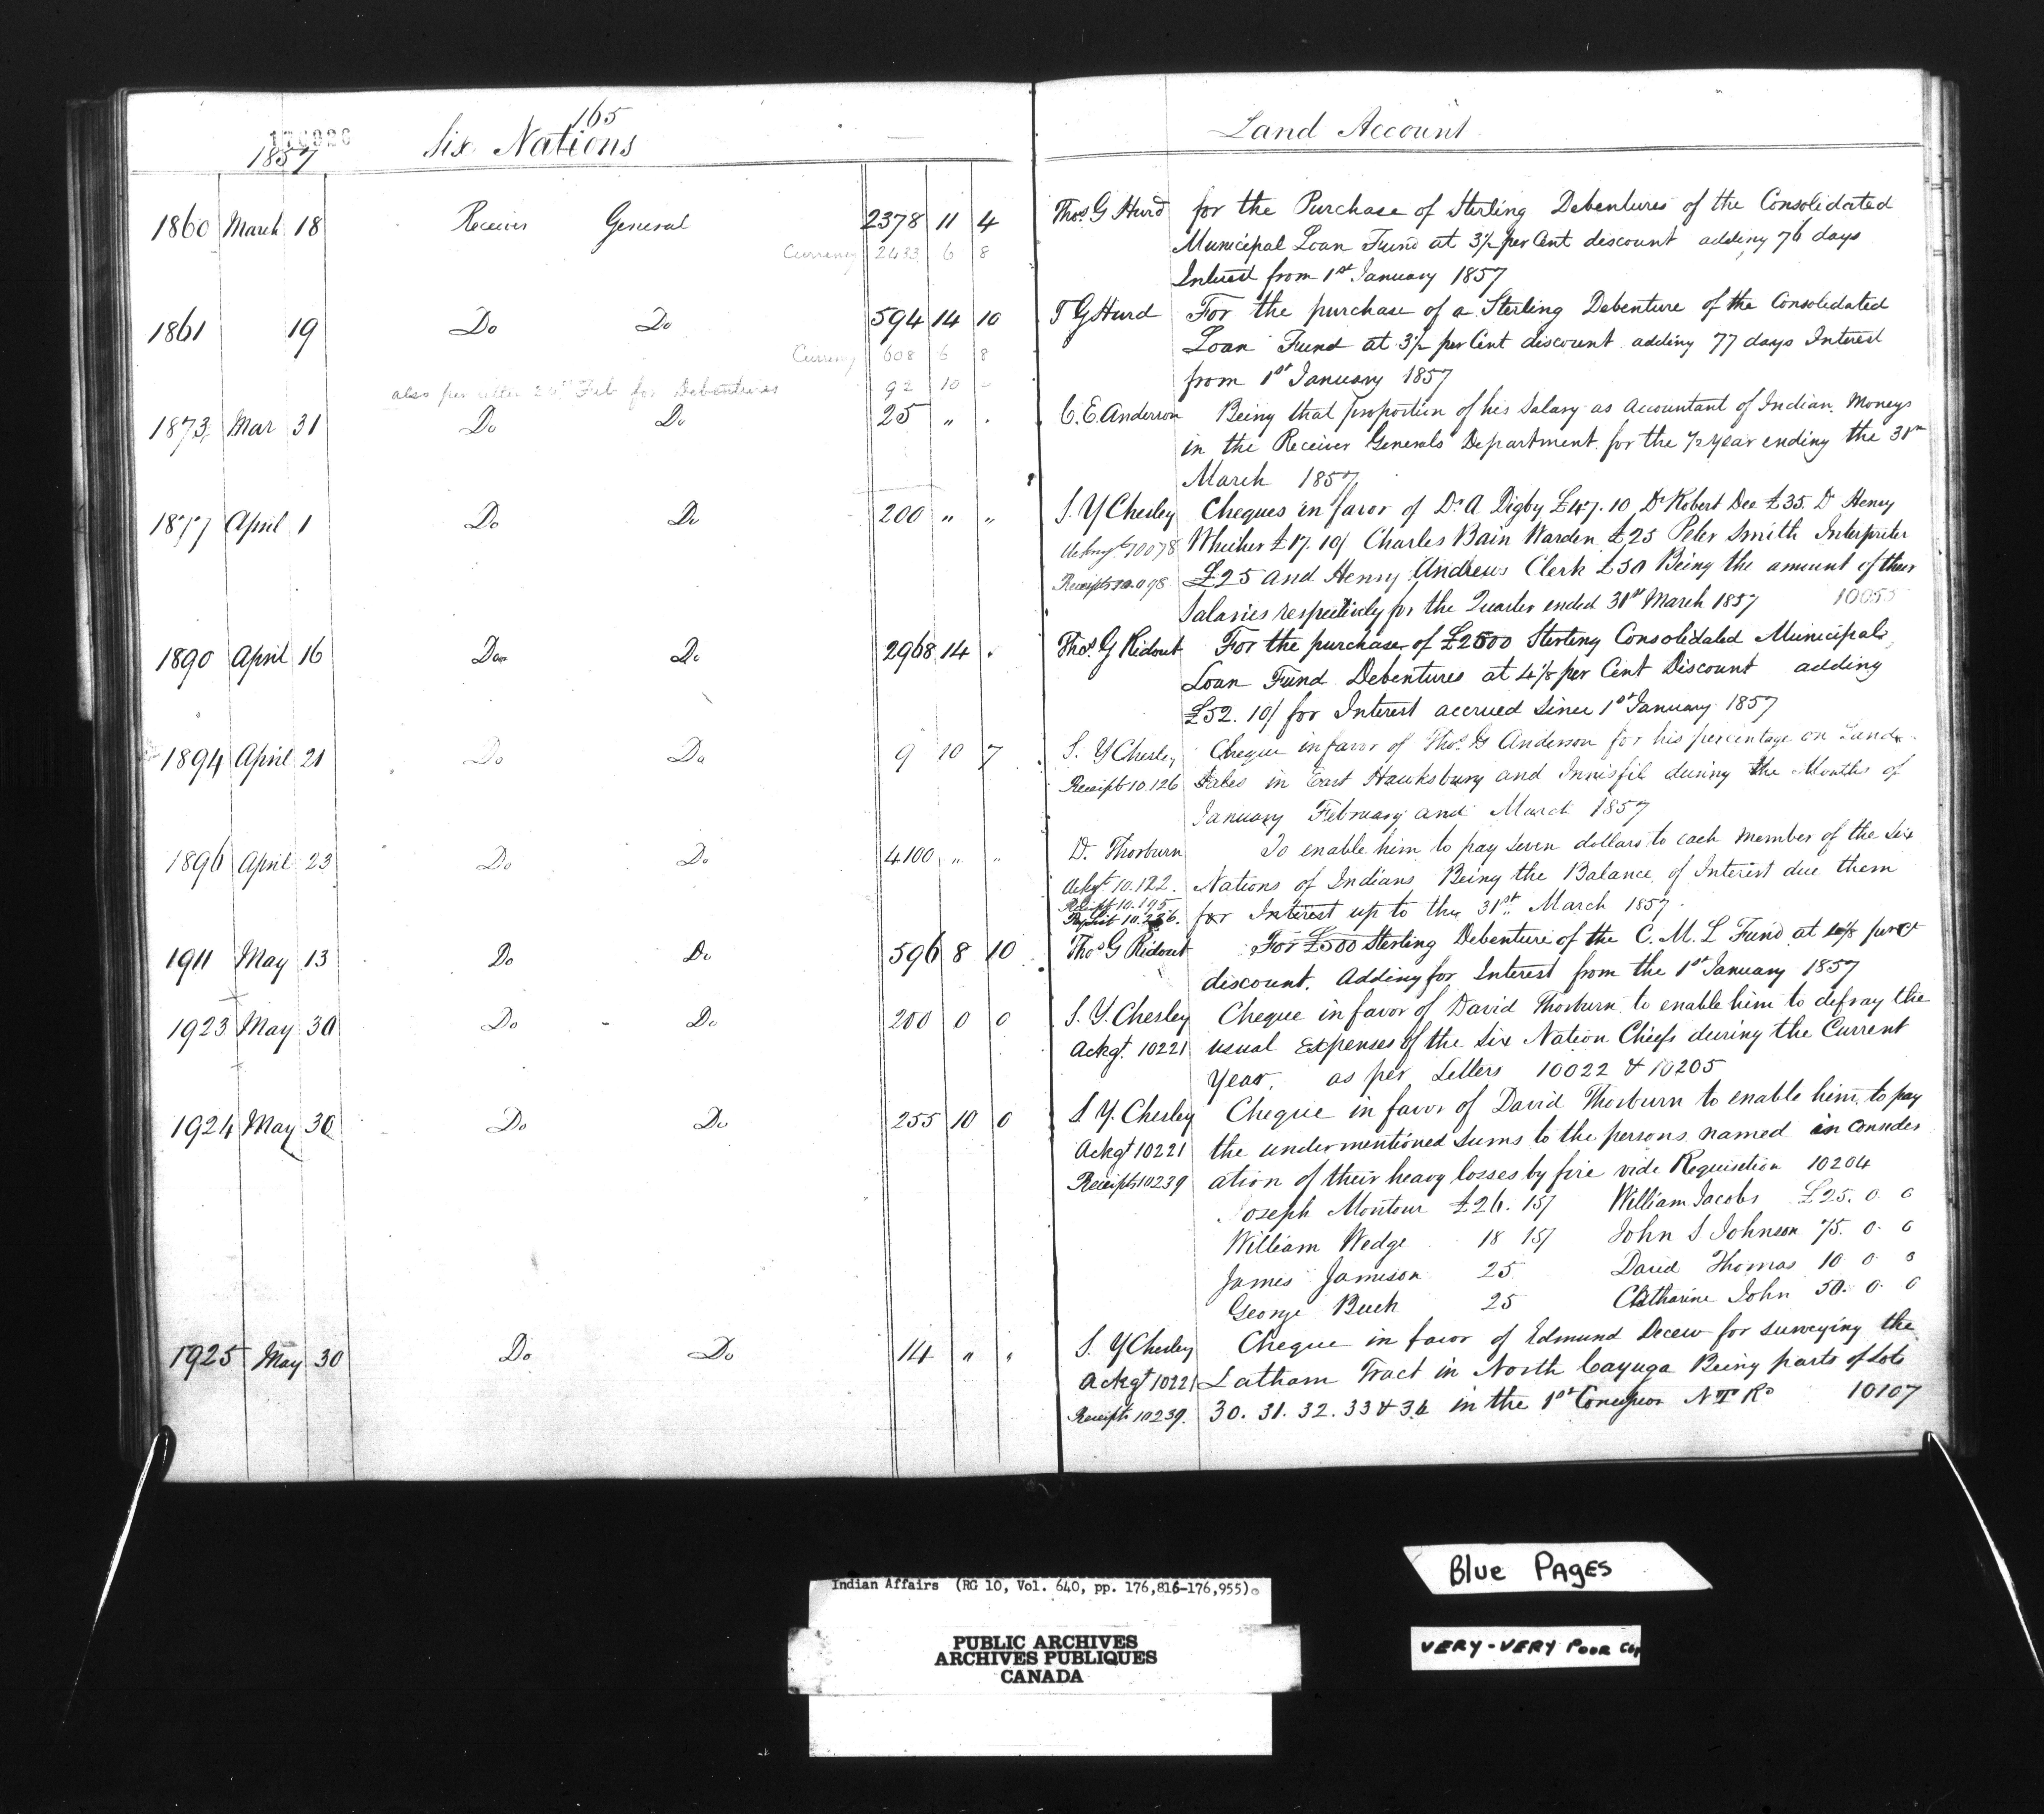 165
1857 Six Nations Land Account
1860 March 18 Receiver General 2378 11 4 Thos. G Hurd for the Purchase of Sterling Debentures of the Consolidated
Currency 2433 6 8 Municipal Loan Fund at 3½ per Cent discount adding 76 days
Interest from 1st January 1857
1861 19 Do Do 594 14 10 T G Hurd For the purchase of a Sterling Debenture of the Consolidated
Currency 608 6 8 Loan Fund at 3½ per Cent discount adding 77 days Interest
also per letter Feb for Debentures 92 10 - from 1st January 1857
1873 Mar 31 Do Do 25 " . C. E. Anderson Being that proportion of his Salary as Accountant of Indian Moneys
in the Receiver Generals Department for the ½ year ending the 31st
March 1857
1877 April 1 Do Do 200 " " S. Y Chesley Cheques in favor of Dr. A Digby £47.10 Dr Robert Dee £35. Dr Henry
10078 Whicher £17.10/ Charles Bain Warden £25 Peter Smith Interpreter
Receipts 10.098 £25 and Henry Andrews Clerk £50 Being the amount of their
Salaries respectively for the Quarter ended 31st March 1857 10055
1890 April 16 Do Do 2968 14 . Thos. G Ridout For the purchase of £2500 Sterling Consolidated Municipal
Loan Fund Debentures at 4⅛ per Cent Discount adding
£52.10/ for Interest accrued Since 1st January 1857
1894 April 21 Do Do 9 10 7 S. Y Chesley Cheque in favor of Thos. G Anderson for his percentage on Land
Receipt 10.126 Sales in East Hawksbury and Innisfil during the Months of
January February and March 1857
1896 April 23 Do Do 4100 " " D. Thorburn To enable him to pay seven dollars to each member of the Six
Ackgt 10.122. Nations of Indians Being the Balance of Interest due them
Receipt 10.195
10.236. for Interest up to the 31st March 1857.
1911 May 13 Do Do 596 8 10 Thos G Ridout For £500 Sterling Debenture of the C. M. L Fund at per Ct
discount. Adding for Interest from the 1st January 1857
1923 May 30 Do Do 200 0 0 S. Y. Chesley Cheque in favor of David Thorburn to enable him to defray the
Ackgt. 10221 usual Expenses of the Six Nation Chiefs during the Current
Year. as per Letters 10022 & 10205
1924 May 30 Do Do 255 10 0 S Y. Chesley Cheque in favor of David Thorburn to enable him to pay
Ackgt 10221 the undermentioned Sums to the persons named in consider
Receipts 10239 ation of their heavy losses by fire vide Requisition 10204
Joseph Montour £26. 15/ William Jacobs £25. 0 0
William Wedge 18 15/ John S Johnson 75. 0 0
James Jamieson 25 David Thomas 10 0 0
George Buck 25 Catharine John 50. 0 0
1925 May 30 Do Do 14 " " S. Y Chesley Cheque in favor of Edmund Decew for surveying the
Ackgt 10221 Latham Tract in North Cayuga Being parts of Lots
Receipts 10239. 30. 31. 32. 33 & 34 in the 1st Concession N T Rd 10107
Blue PAGES
Indian Affairs (RG 10, Vol. 640, pp. 176,816-176,955)
VERY-VERY POOR
PUBLIC ARCHIVES
ARCHIVES PUBLIQUES
CANADA